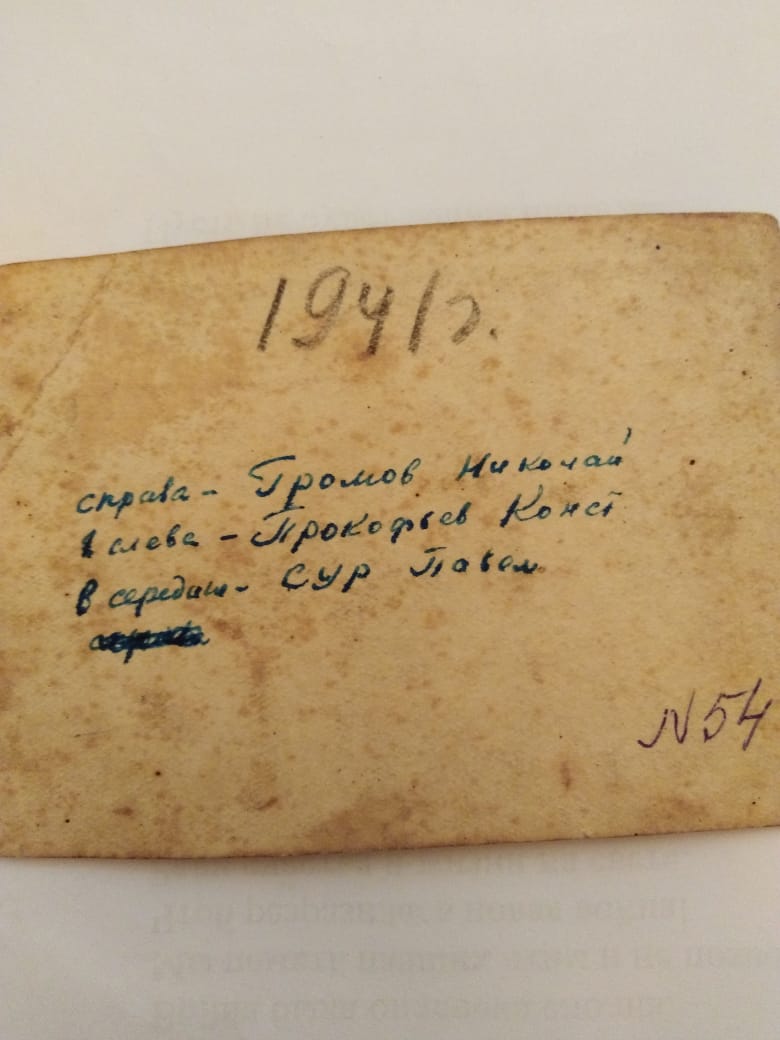 1941г.
справа - Громов Николай
в слева - Прокофьев Конст
в середине - СУР Павел
N 54